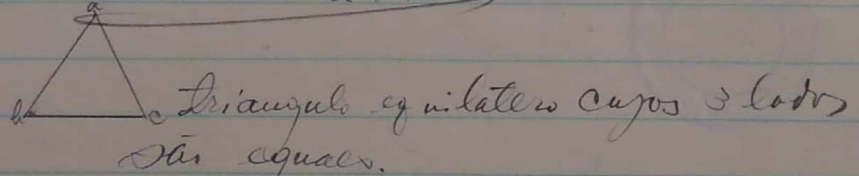 a
b c triangulo equilatero cujos 3 lados
são eguaes.